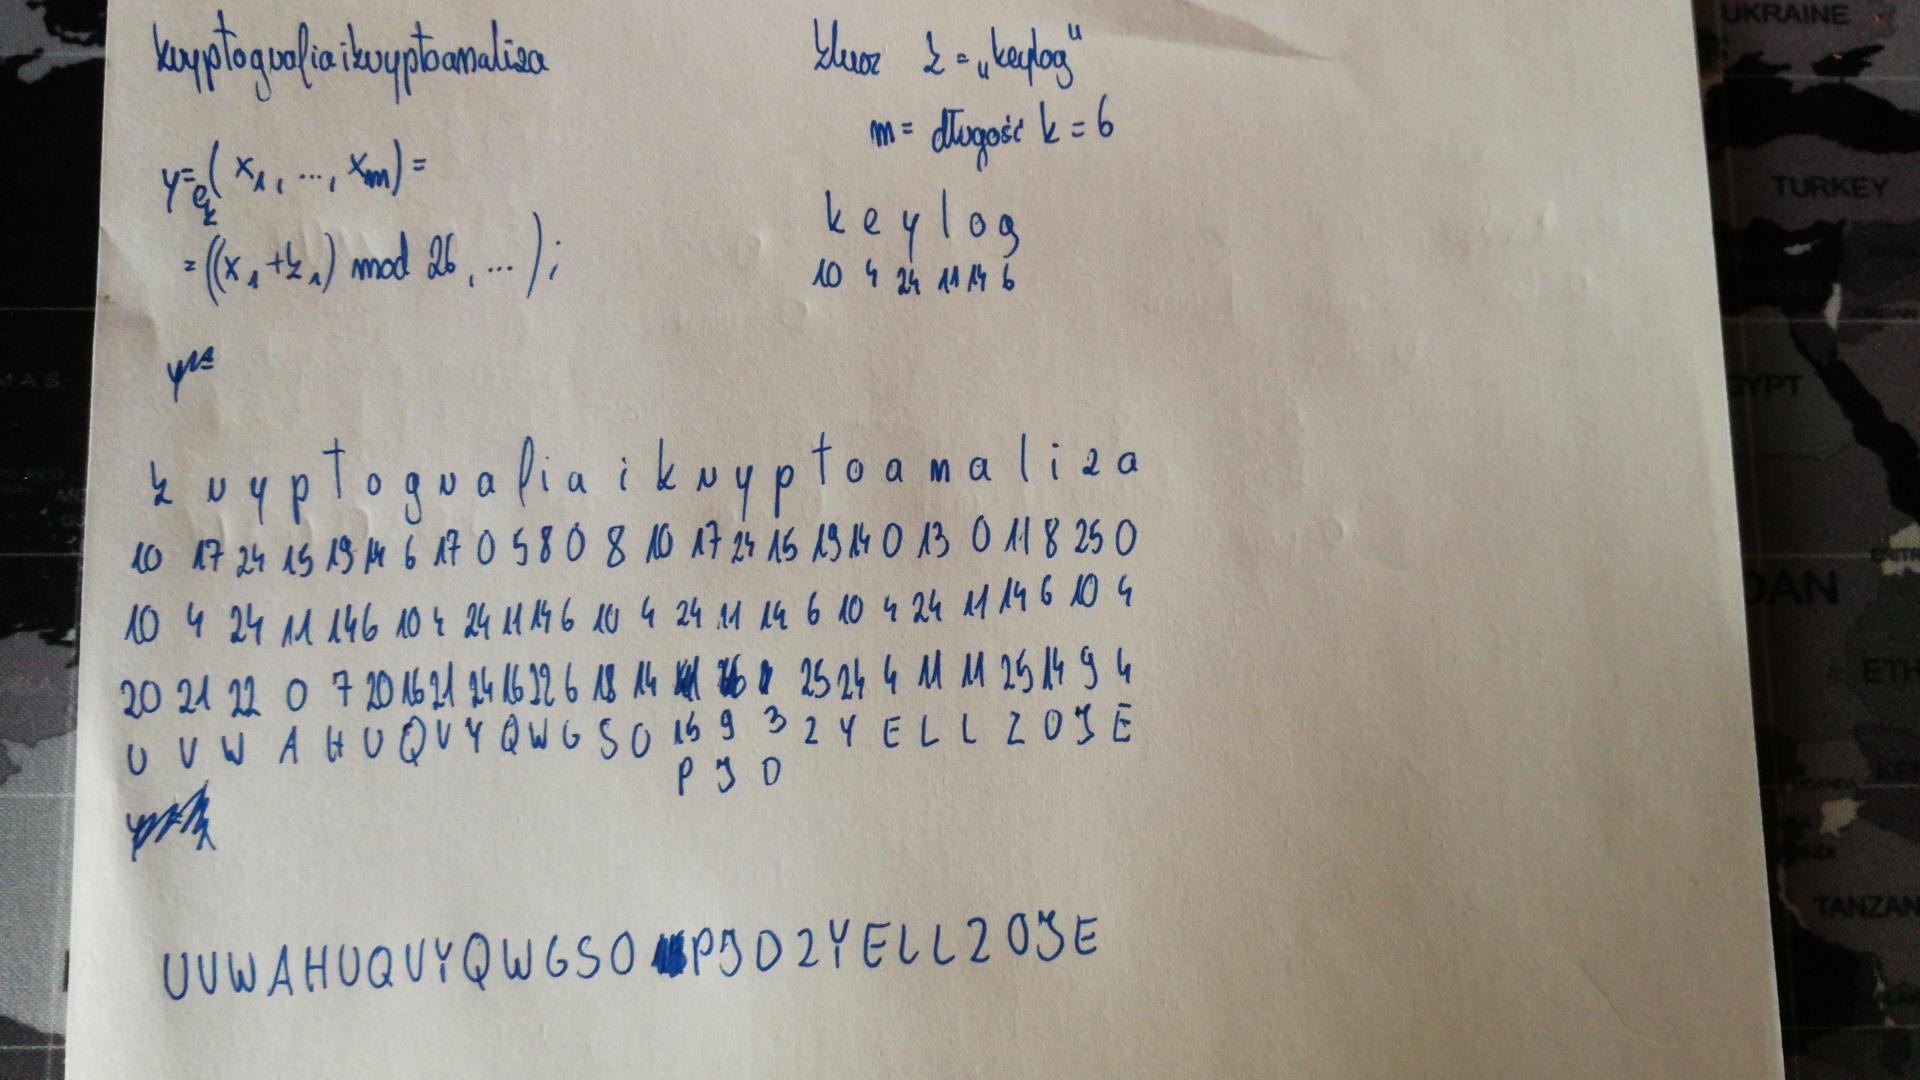 kryptografiaikryptoanaliza
klucz k = „keylog"
m = długość k = 6
y = e_k(x_1, ..., x_m) =
= ((x_1 + k_1) mod 26, ...);
k e y l o g
10 4 24 11 14 6
y =
k r y p t o g r a f i a i k r y p t o a n a l i z a
10 17 24 15 19 14 6 17 0 5 8 0 8 10 17 24 15 19 14 0 13 0 11 8 25 0
10 4 24 11 14 6 10 4 24 11 14 6 10 4 24 11 14 6 10 4 24 11 14 6 10 4
20 21 22 0 7 20 16 21 24 16 22 6 18 14 25 24 4 11 11 25 14 9 4
U V W A H U Q V Y Q W G S O 15 9 3 Z Y E L L Z O J E
P J D
UVWAHUQVYQWGSO PJDZYELLZOJE
UKRAINE
TURKEY
GYPT
DAN
ETH
KEN
TANZAN